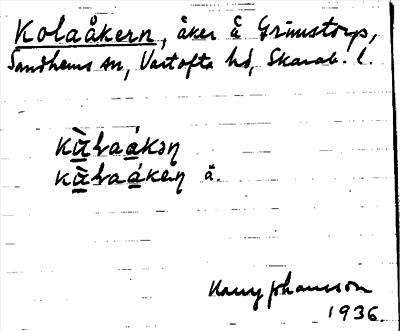 Kolaåkern, åker å Grimstorp,
Sandhems sn, Vartofta hd, Skarab. l.
kù̲ɫaá̲kəɳ
kù̲ɫaá̲keɳ ä.
Harry Johansson
1936.